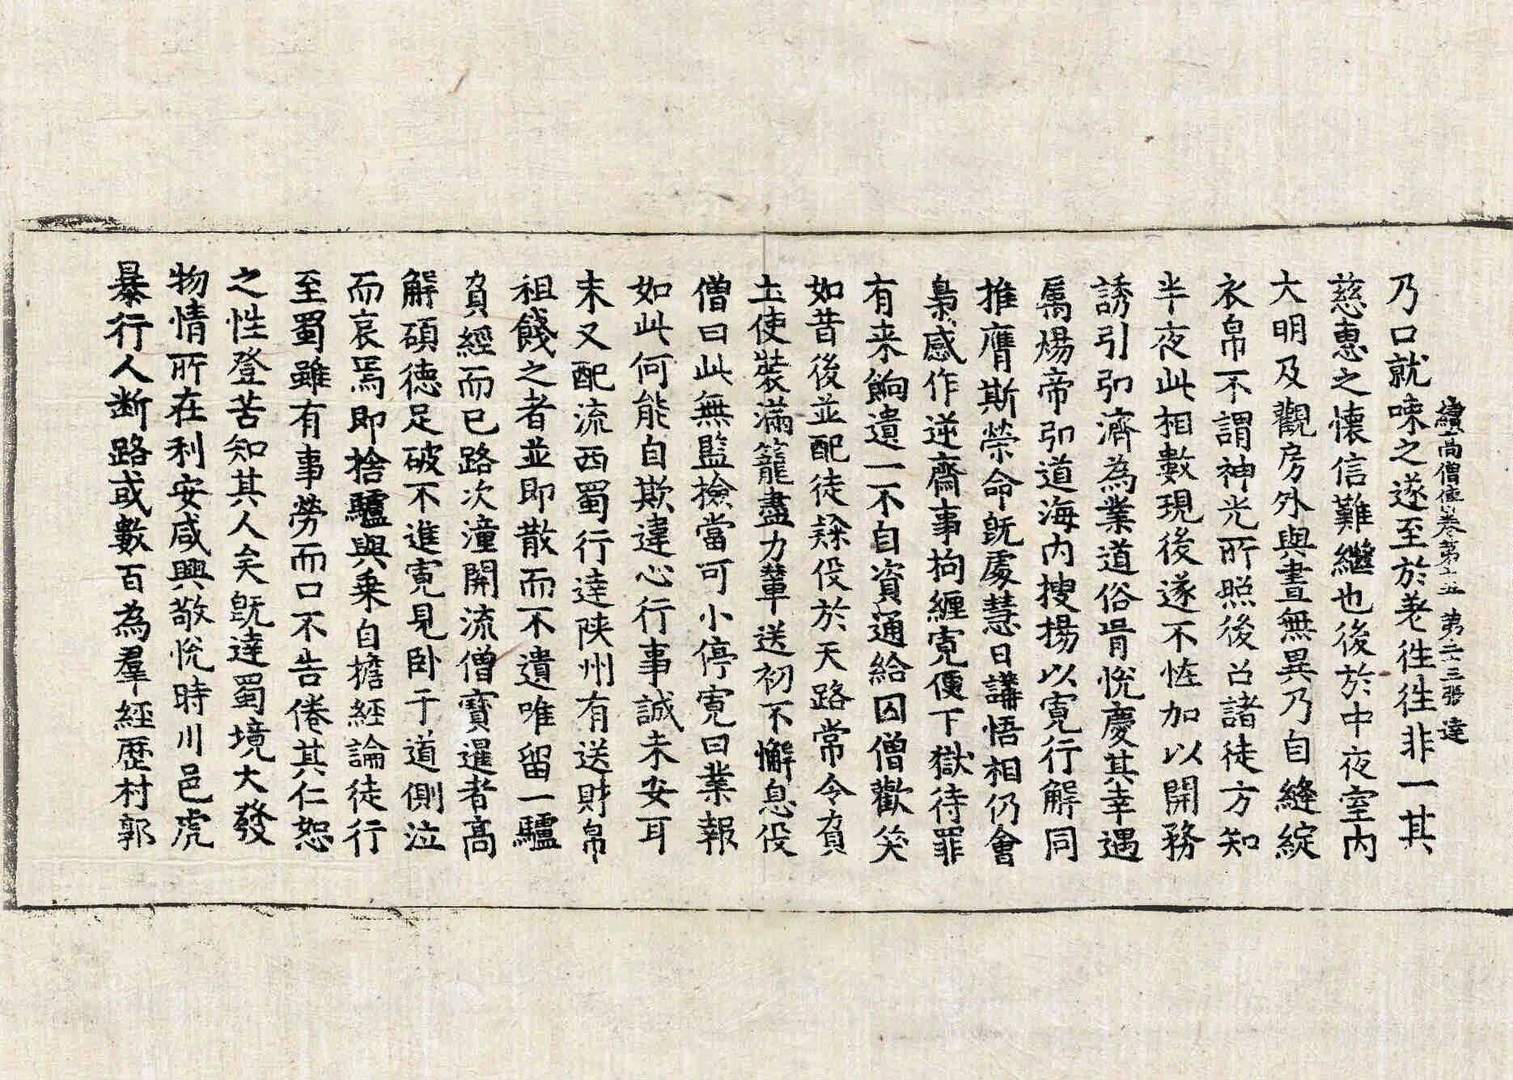 續高僧傳卷第十五 第二十三張 達
乃口就唻之遂至於老徃徃非一其
慈惠之懷信難繼也後於中夜室内
大明及觀房外與晝無異乃自縫綻
衣帛不謂神光所照後召諸徒方知
半夜此相數現後遂不恠加以開務
誘引弘濟為業道俗肯恱慶其幸遇
属煬帝弘道海内搜揚以寛行解同
推膺斯榮命旣處慧日講悟相仍會
梟感作逆齋事拘纏寛便下獄待罪
有来餉遺一不自資通給囚僧歡笑
如昔後並配徒隸伇於天路常令負
土使裝滿籠盡力輦送初不懈息伇
僧曰此無監撿當可小停寛曰業報
如此何能自欺違心行事誠未安耳
末又配流西蜀行達陝州有送財帛
祖餞之者並即散而不遺唯留一驢
負經而已路次潼關流僧寶暹者高
解碩德足破不進寛見卧于道側泣
而哀焉即捨驢與乗自擔經論徒行
至蜀雖有事勞而口不告倦其仁恕
之性登苦知其人矣旣達蜀境大發
物情所在利安咸興敬恱時川邑虎
暴行人断路或數百為羣經歷村郭